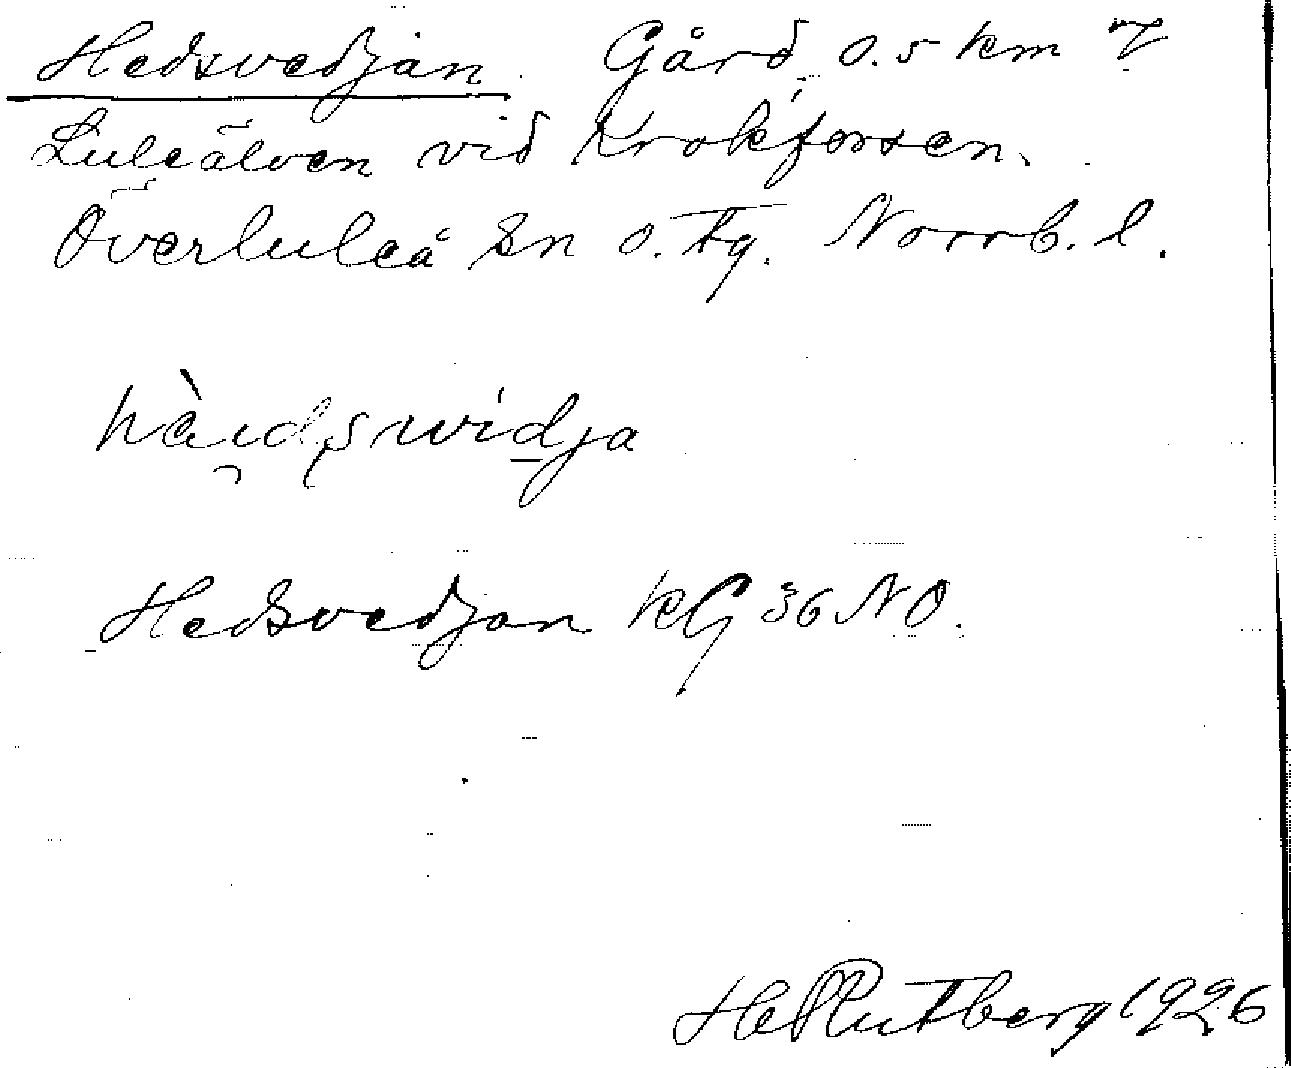 Hedsvedjan. Gård, 0.5 km
Luleälven vid Krokforsen.
Överluleå sn o. tg. Norrb. l.
Hedsvedjan KG 36 NO.
Rutberg 1926